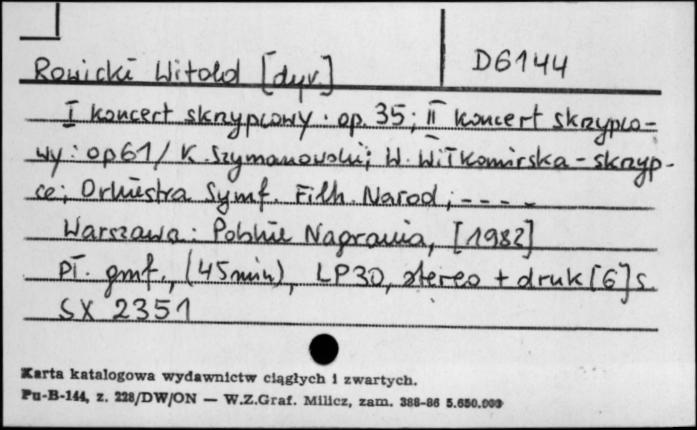 D6144
Rowicki Witold [dyr.]
I koncert skrzypcowy : op. 35; II koncert skrzypco-
wy : op 61 / K. Szymanowski; W. Wiłkomirska - skrzyp-
ce; Orkiestra Symf. Filh. Narod; - - - -
Warszawa : Polskie Nagrania, [1982]
Pł. gmf., (45 min), LP30, stereo + druk [6] s.
SX 2351
Karta katalogowa wydawnictw ciągłych i zwartych.
Pu-B-144, z. 228/DW/ON — W.Z.Graf. Milicz, zam. 388-86 5.650.000